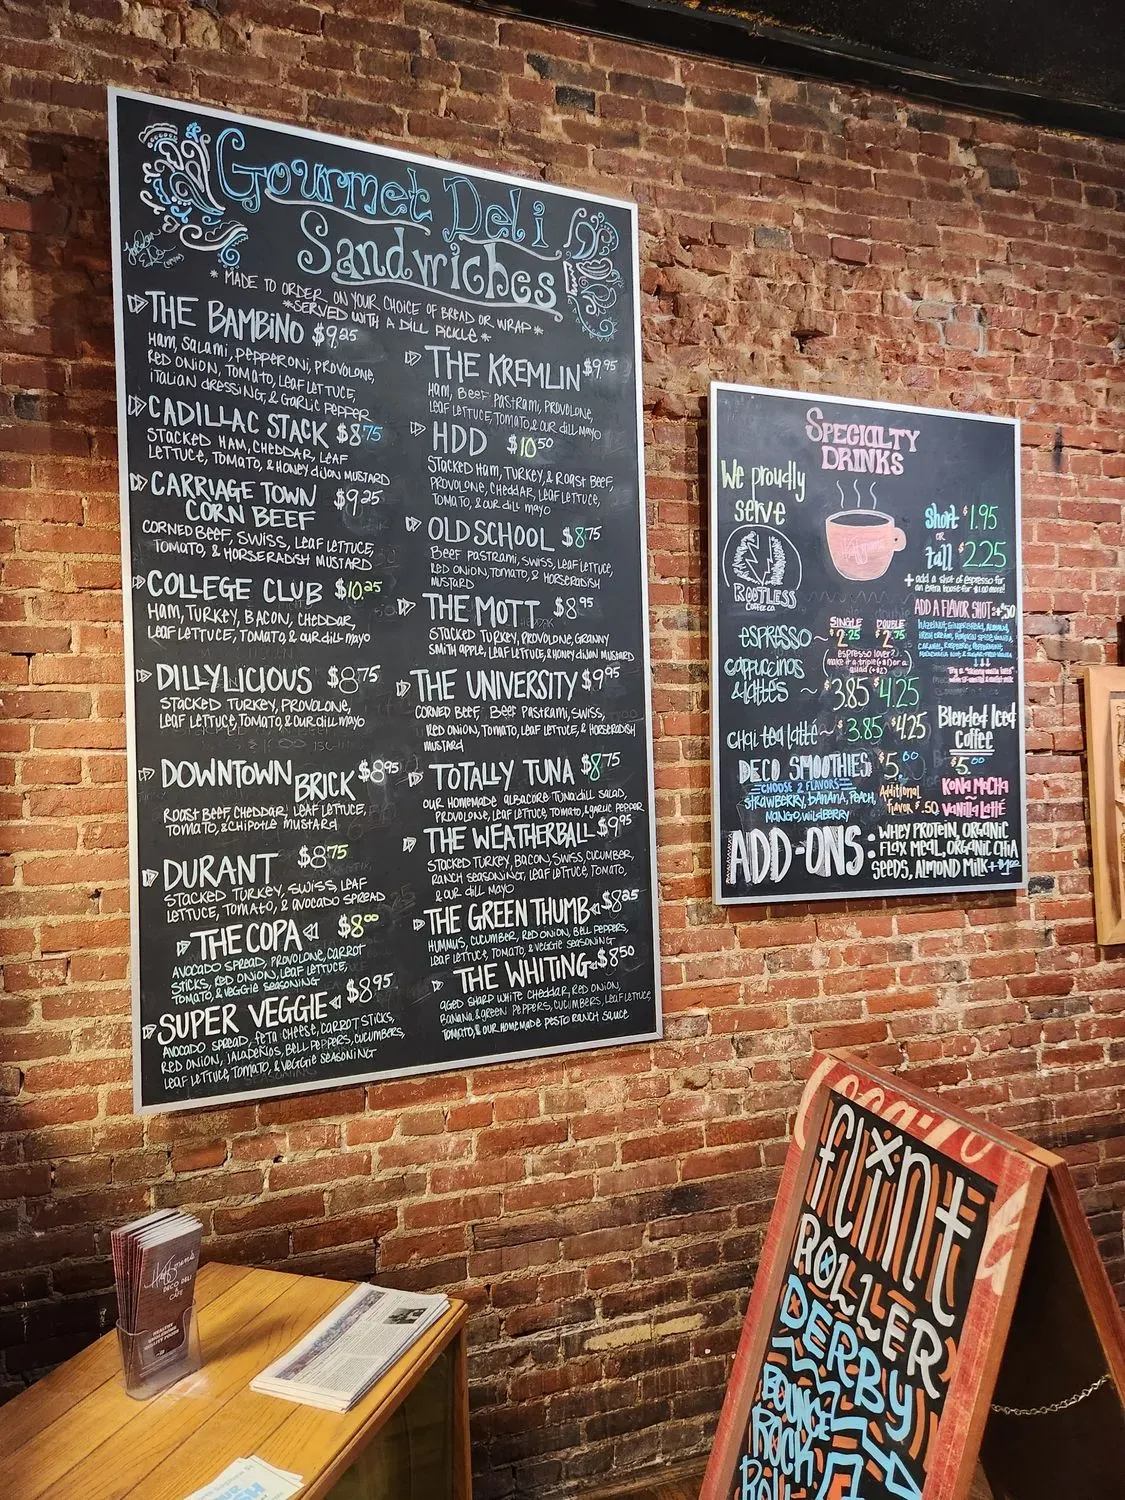 Gourmet Deli
Sandwiches
* MADE TO ORDER ON YOUR CHOICE OF BREAD OR WRAP *
* SERVED WITH A DILL PICKLE *
THE BAMBINO $9.25
HAM, SALAMI, PEPPERONI, PROVOLONE,
RED ONION, TOMATO, LEAF LETTUCE,
ITALIAN DRESSING, & GARLIC PEPPER
CADILLAC STACK $8.75
STACKED HAM, CHEDDAR, LEAF
LETTUCE, TOMATO, & HONEY DIJON MUSTARD
CARRIAGE TOWN $9.25
CORN BEEF
CORNED BEEF, SWISS, LEAF LETTUCE,
TOMATO, & HORSERADISH MUSTARD
COLLEGE CLUB $10.25
HAM, TURKEY, BACON, CHEDDAR,
LEAF LETTUCE, TOMATO & OUR DILL MAYO
DILLYLICIOUS $8.75
STACKED TURKEY, PROVOLONE,
LEAF LETTUCE, TOMATO, & OUR DILL MAYO
DOWNTOWN BRICK $8.95
ROAST BEEF, CHEDDAR, LEAF LETTUCE,
TOMATO, & CHIPOTLE MUSTARD
DURANT $8.75
STACKED TURKEY, SWISS, LEAF
LETTUCE, TOMATO, & AVOCADO SPREAD
THE COPA $8.00
AVOCADO SPREAD, PROVOLONE, CARROT
STICKS, RED ONION, LEAF LETTUCE,
TOMATO & VEGGIE SEASONING
SUPER VEGGIE $8.95
AVOCADO SPREAD, FETA CHEESE, CARROT STICKS,
RED ONION, JALAPEÑOS, BELL PEPPERS, CUCUMBERS,
LEAF LETTUCE, TOMATO, & VEGGIE SEASONING
THE KREMLIN $9.95
HAM, BEEF PASTRAMI, PROVOLONE,
LEAF LETTUCE, TOMATO & OUR DILL MAYO
HDD $10.50
STACKED HAM, TURKEY, & ROAST BEEF,
PROVOLONE, CHEDDAR, LEAF LETTUCE,
TOMATO, & OUR DILL MAYO
OLD SCHOOL $8.75
BEEF PASTRAMI, SWISS, LEAF LETTUCE,
RED ONION, TOMATO, & HORSERADISH
MUSTARD
THE MOTT $8.95
STACKED TURKEY, PROVOLONE, GRANNY
SMITH APPLE, LEAF LETTUCE, & HONEY DIJON MUSTARD
THE UNIVERSITY $9.95
CORNED BEEF, BEEF PASTRAMI, SWISS,
RED ONION, TOMATO, LEAF LETTUCE, & HORSERADISH
MUSTARD
TOTALLY TUNA $8.75
OUR HOMEMADE ALBACORE TUNA DILL SALAD,
PROVOLONE, LEAF LETTUCE, TOMATO, & GARLIC PEPPER
THE WEATHERBALL $9.95
STACKED TURKEY, BACON, SWISS, CUCUMBER,
RANCH SEASONING, LEAF LETTUCE, TOMATO,
& OUR DILL MAYO
THE GREEN THUMB $8.25
HUMMUS, CUCUMBER, RED ONION, BELL PEPPERS,
LEAF LETTUCE, TOMATO & VEGGIE SEASONING
THE WHITING $8.50
AGED SHARP WHITE CHEDDAR, RED ONION,
BANANA & GREEN PEPPERS, CUCUMBERS, LEAF LETTUCE,
TOMATO, & OUR HOMEMADE PESTO RANCH SAUCE
SPECIALTY
DRINKS
We proudly
serve
ROOTLESS
COFFEE CO.
Short $1.95
OR
Tall $2.25
+ add a shot of espresso for
an extra boost for $1.00 more!
ADD A FLAVOR SHOT: $.50
SINGLE DOUBLE
ESPRESSO ~ $2.25 $2.75
espresso lover?
make it a triple (+$1) or a
quad (+$2)
cappuccinos
& lattés ~ $3.85 $4.25
chai tea latté ~ $3.85 $4.25
Blended Iced
Coffee
$5.00
KONA MOCHA
VANILLA LATTÉ
DECO SMOOTHIES $5.00
CHOOSE 2 FLAVORS
STRAWBERRY, BANANA, PEACH,
MANGO, WILDBERRY
Additional
flavor $.50
ADD-ONS: WHEY PROTEIN, ORGANIC
FLAX MEAL, ORGANIC CHIA
SEEDS, ALMOND MILK + $1.00
flint
ROLLER
DERBY
BOUNCE
ROCK
ROLL
DECO DELI
CAFE